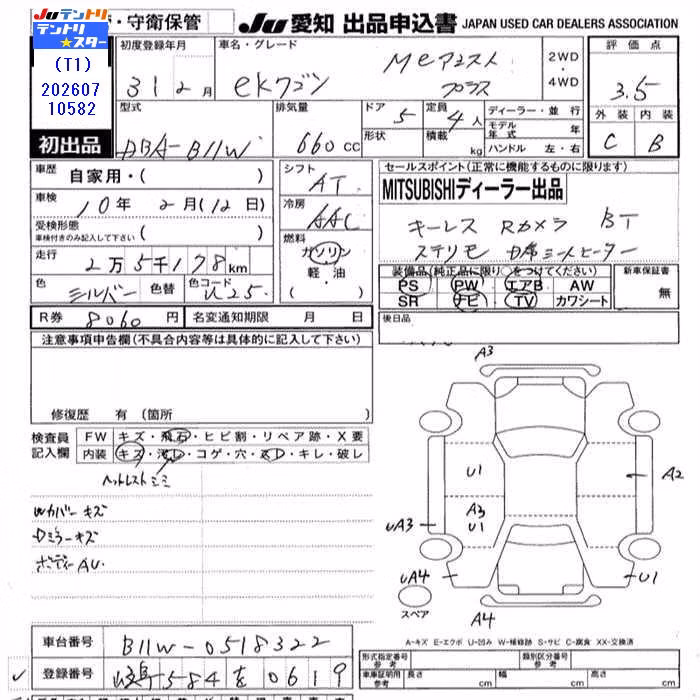 Juテントリ
テントリ
★スター
(T1)
202607
10582
・守衛保管
Ju 愛知 出品申込書 JAPAN USED CAR DEALERS ASSOCIATION
初出品
初度登録年月
31 2月
車名・グレード
ekワゴン
2WD
・
4WD
評価点
3.5
外装 内装
C B
型式
DBA-B11W
排気量
660cc
ドア 5
形状
定員 4人
積載 kg
ディーラー・並行
モデル年式 年
ハンドル 左・右
車歴 自家用・( )
車検 10年 2月(12日)
受検形態
車検付きのみ記入して下さい ( )
走行 2万5千178km
色 シルバー 色替 色コード U25
R券 8060円 名変通知期限 月 日
シフト
AT
冷房
AAC
燃料
ガソリン
軽油
・( )
セールスポイント(正常に機能するものに限ります)
MITSUBISHIディーラー出品
キーレス Rカメラ BT
ステリモ D席シートヒーター
装備品(純正品に限り○をつけてください)
PS PW エアB AW
SR ナビ TV カワシート
新車保証書
無
後日品
注意事項申告欄(不具合内容等は具体的に記入して下さい)
修復歴 有(箇所
検査員
記入欄
FW キズ・飛石・ヒビ割・リペア跡・X要
内装 キズ・汚レ・コゲ・穴・スレ・キレ・破レ
Wカバーキズ
Dミラーキズ
ボディーAU
A3
U1
A2
A3
U1
UA3
UA4
U1
スペア
A4
A-キズ E-エクボ U-凹み W-補修跡 S-サビ C-腐食 XX-交換済
車台番号 B11W-0518322
登録番号 584 を 0619
形式指定番号
参考
類別区分番号
参考
車庫証明用
参考
長さ cm 幅 cm 高さ cm